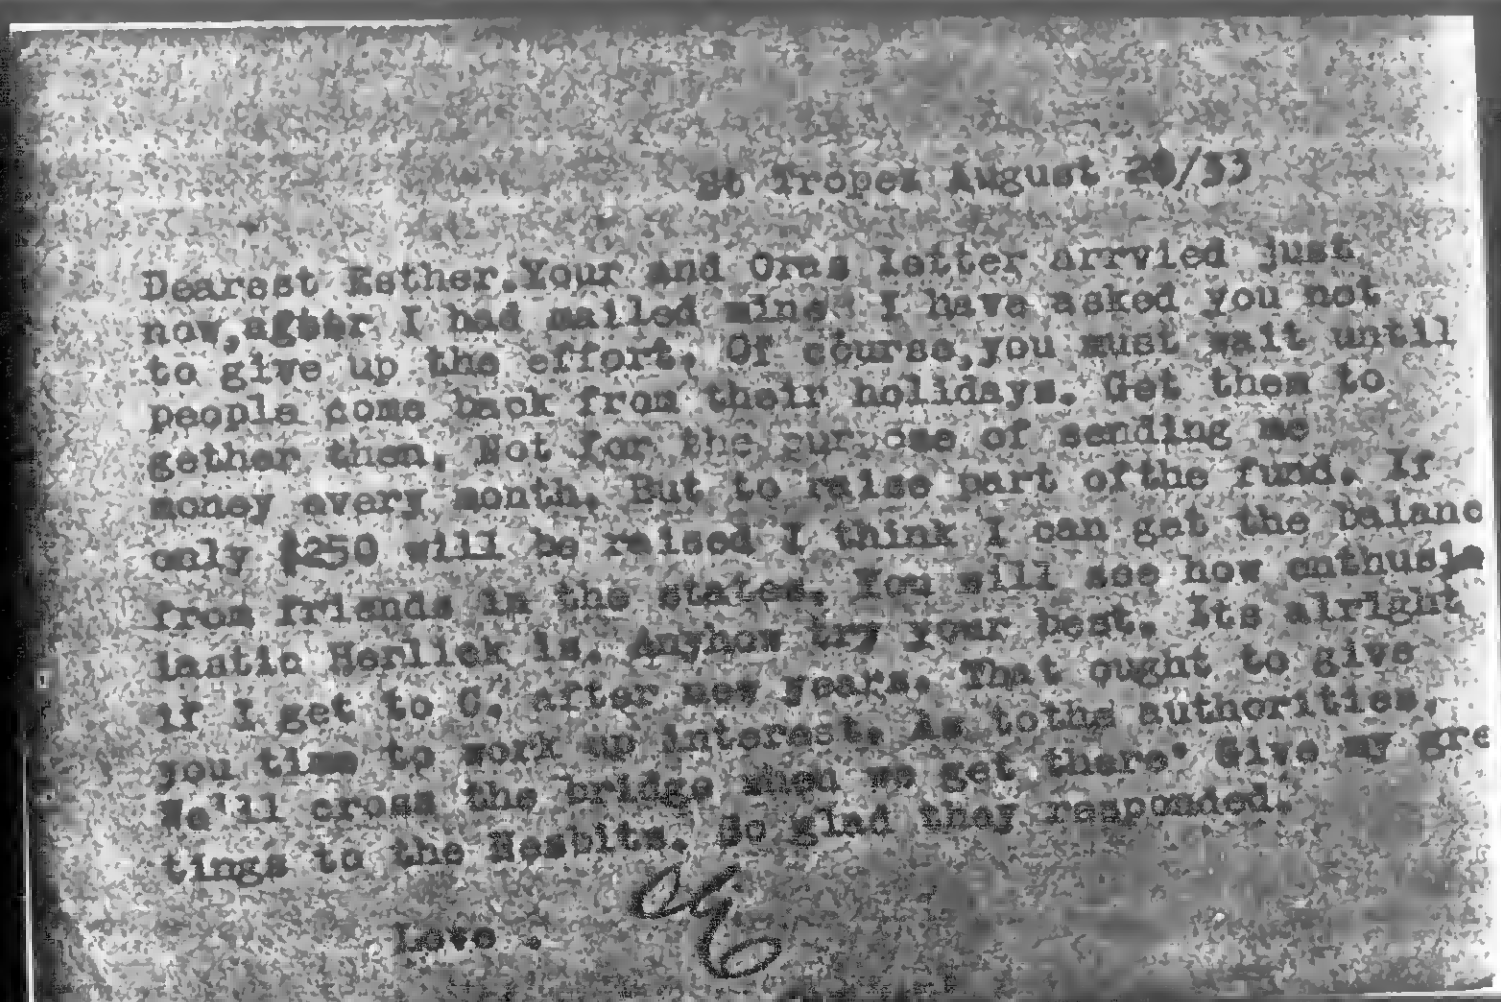 St Tropez August 28/33
Dearest Esther.Your and Oras letter arrvied just
now,after I had mailed mine. I have asked you not
to give up the effort. Of course,you must wait until
people come back from their holidays. Get them to
gether then. Not for the pur ose of sending me
money every month. But to raise part ofthe fund. If
only $250 will be raised I think I can get the balanc
from frriends in the states. You will see how enthusia
iastic Herlick is. Anyhow try your best. Its alright
if I get to C. after new years. That ought to give
you time to work up interest. As tothe authorities.
We'll cross the bridge when we get there. Give my gre
tings to the Nesbits. So glad they responded.
Love .